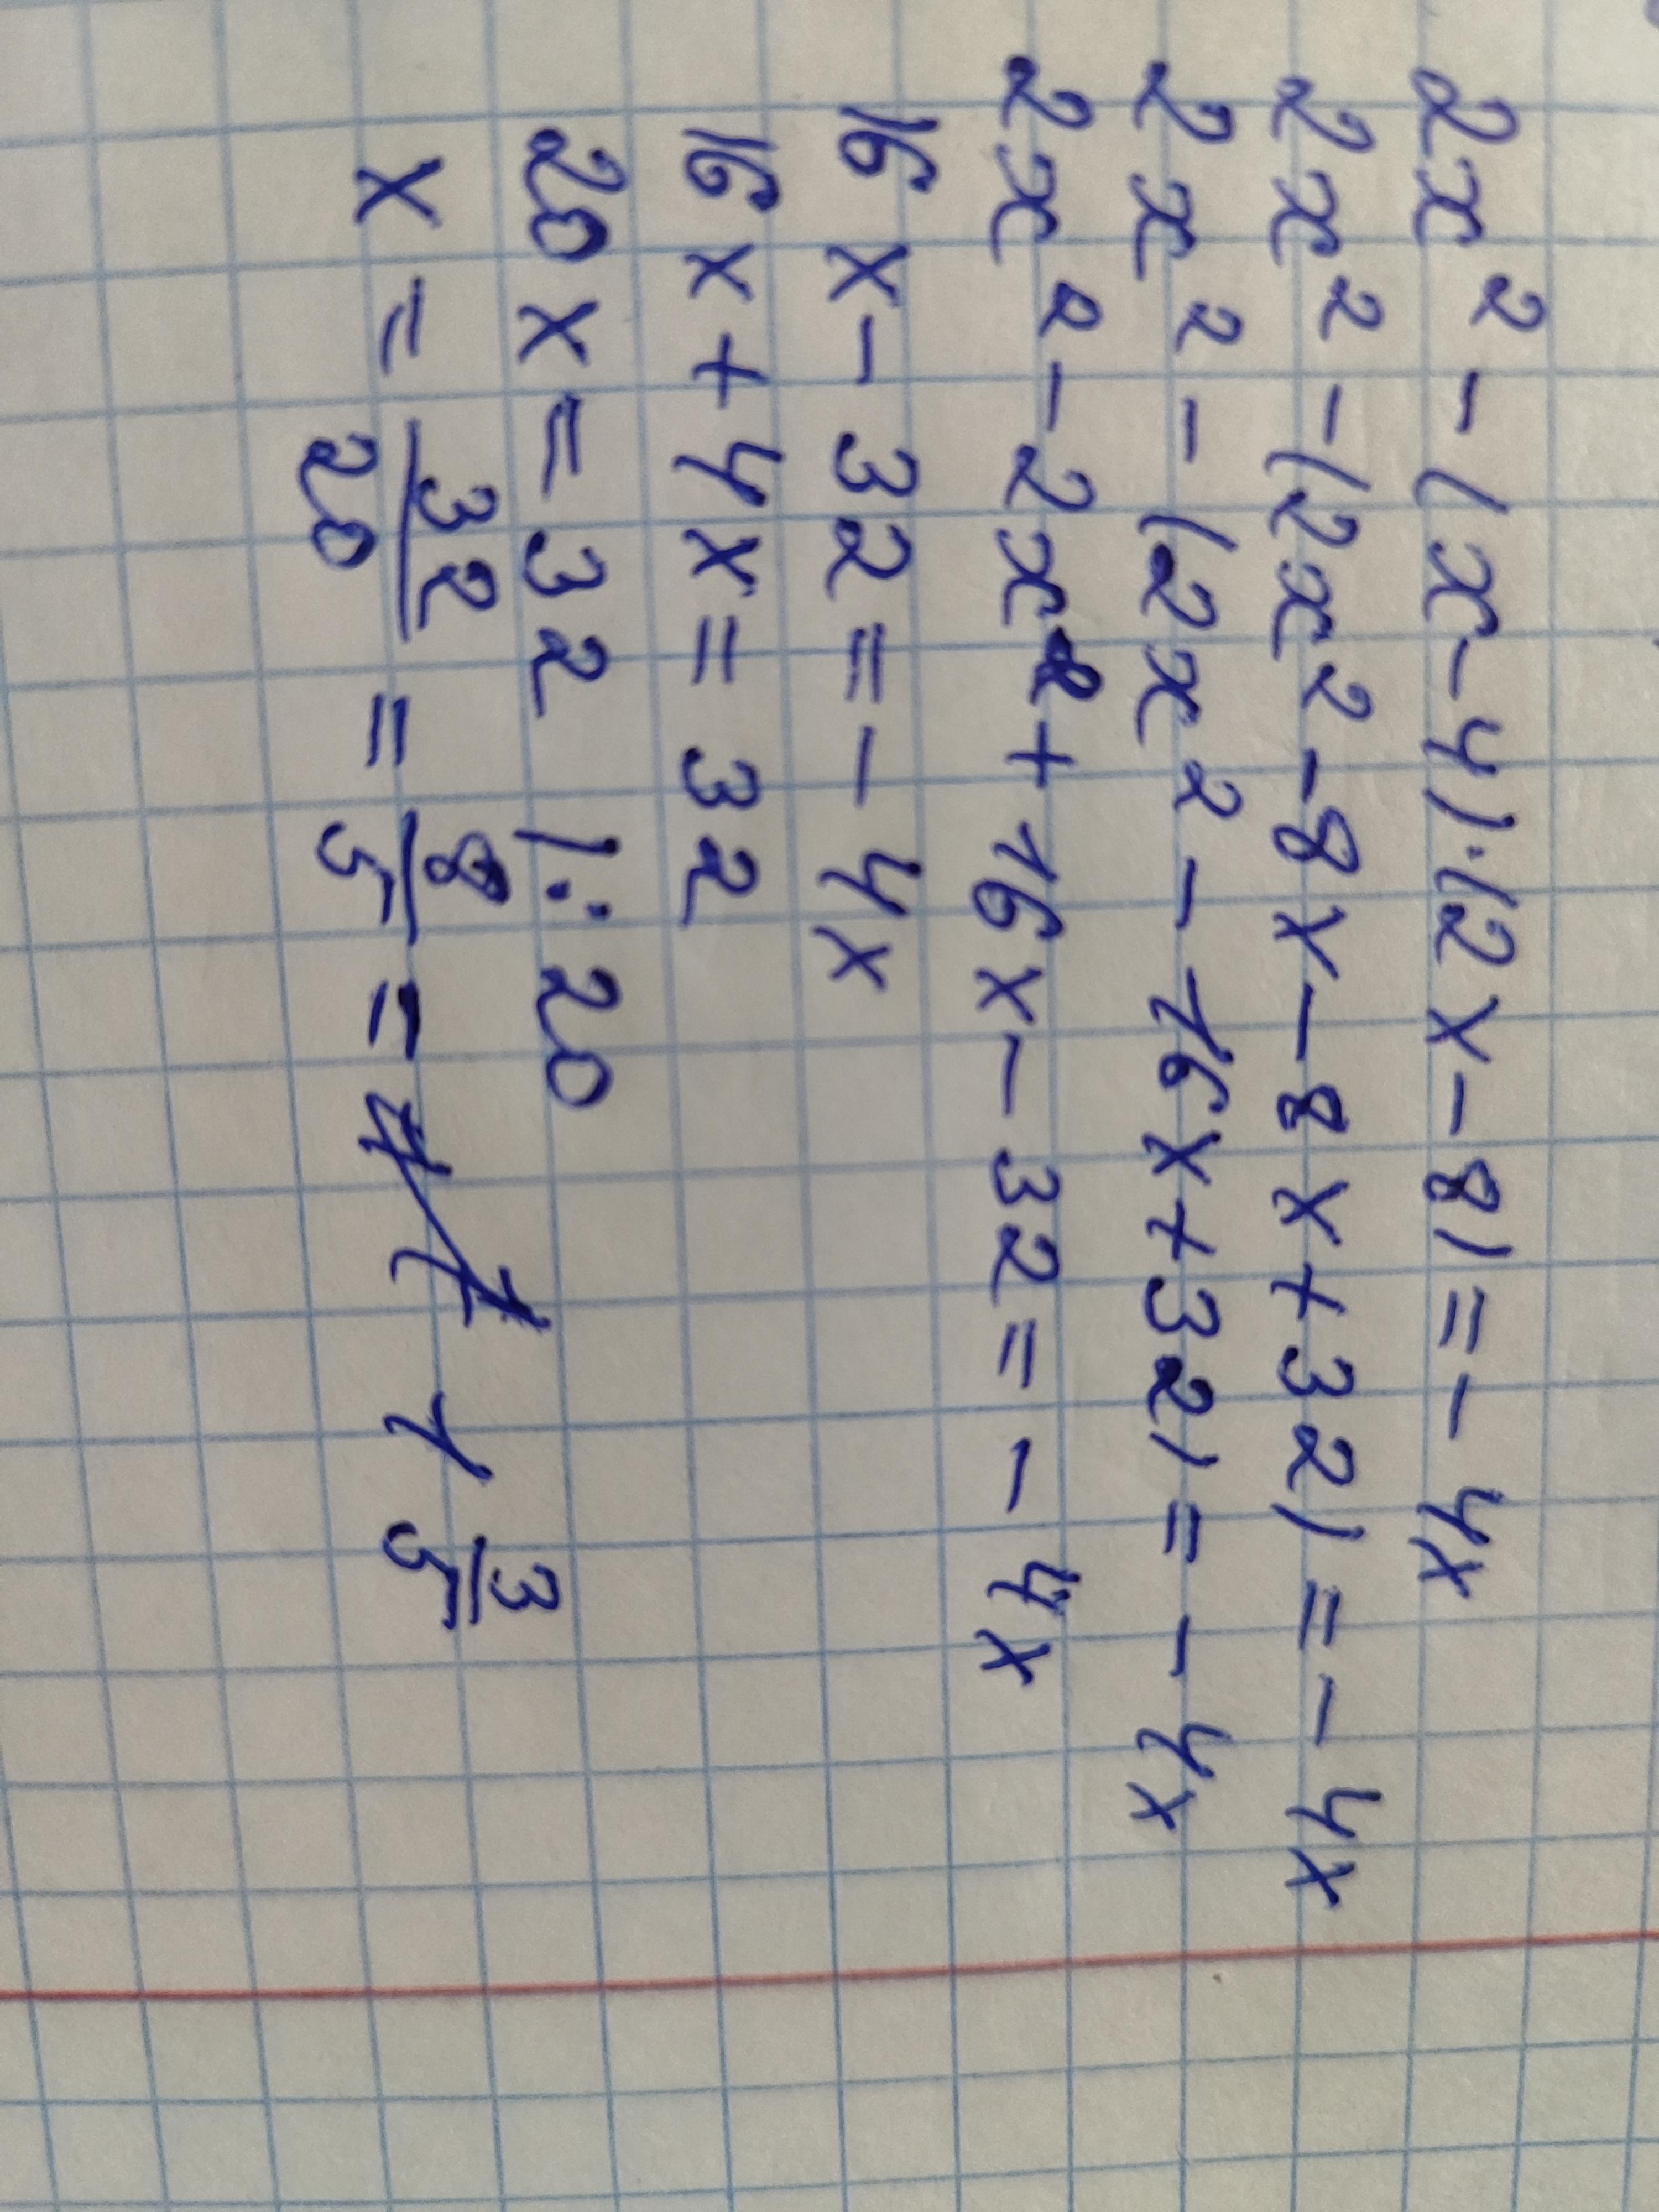 2x² - (x - 4) · (2x - 8) = - 4x
2x² - (2x² - 8x - 8x + 32) = - 4x
2x² - (2x² - 16x + 32) = - 4x
2x² - 2x² + 16x - 32 = - 4x
16x - 32 = - 4x
16x + 4x = 32
20x = 32 | : 20
x = 32/20 = 8/5 = 1 3/5